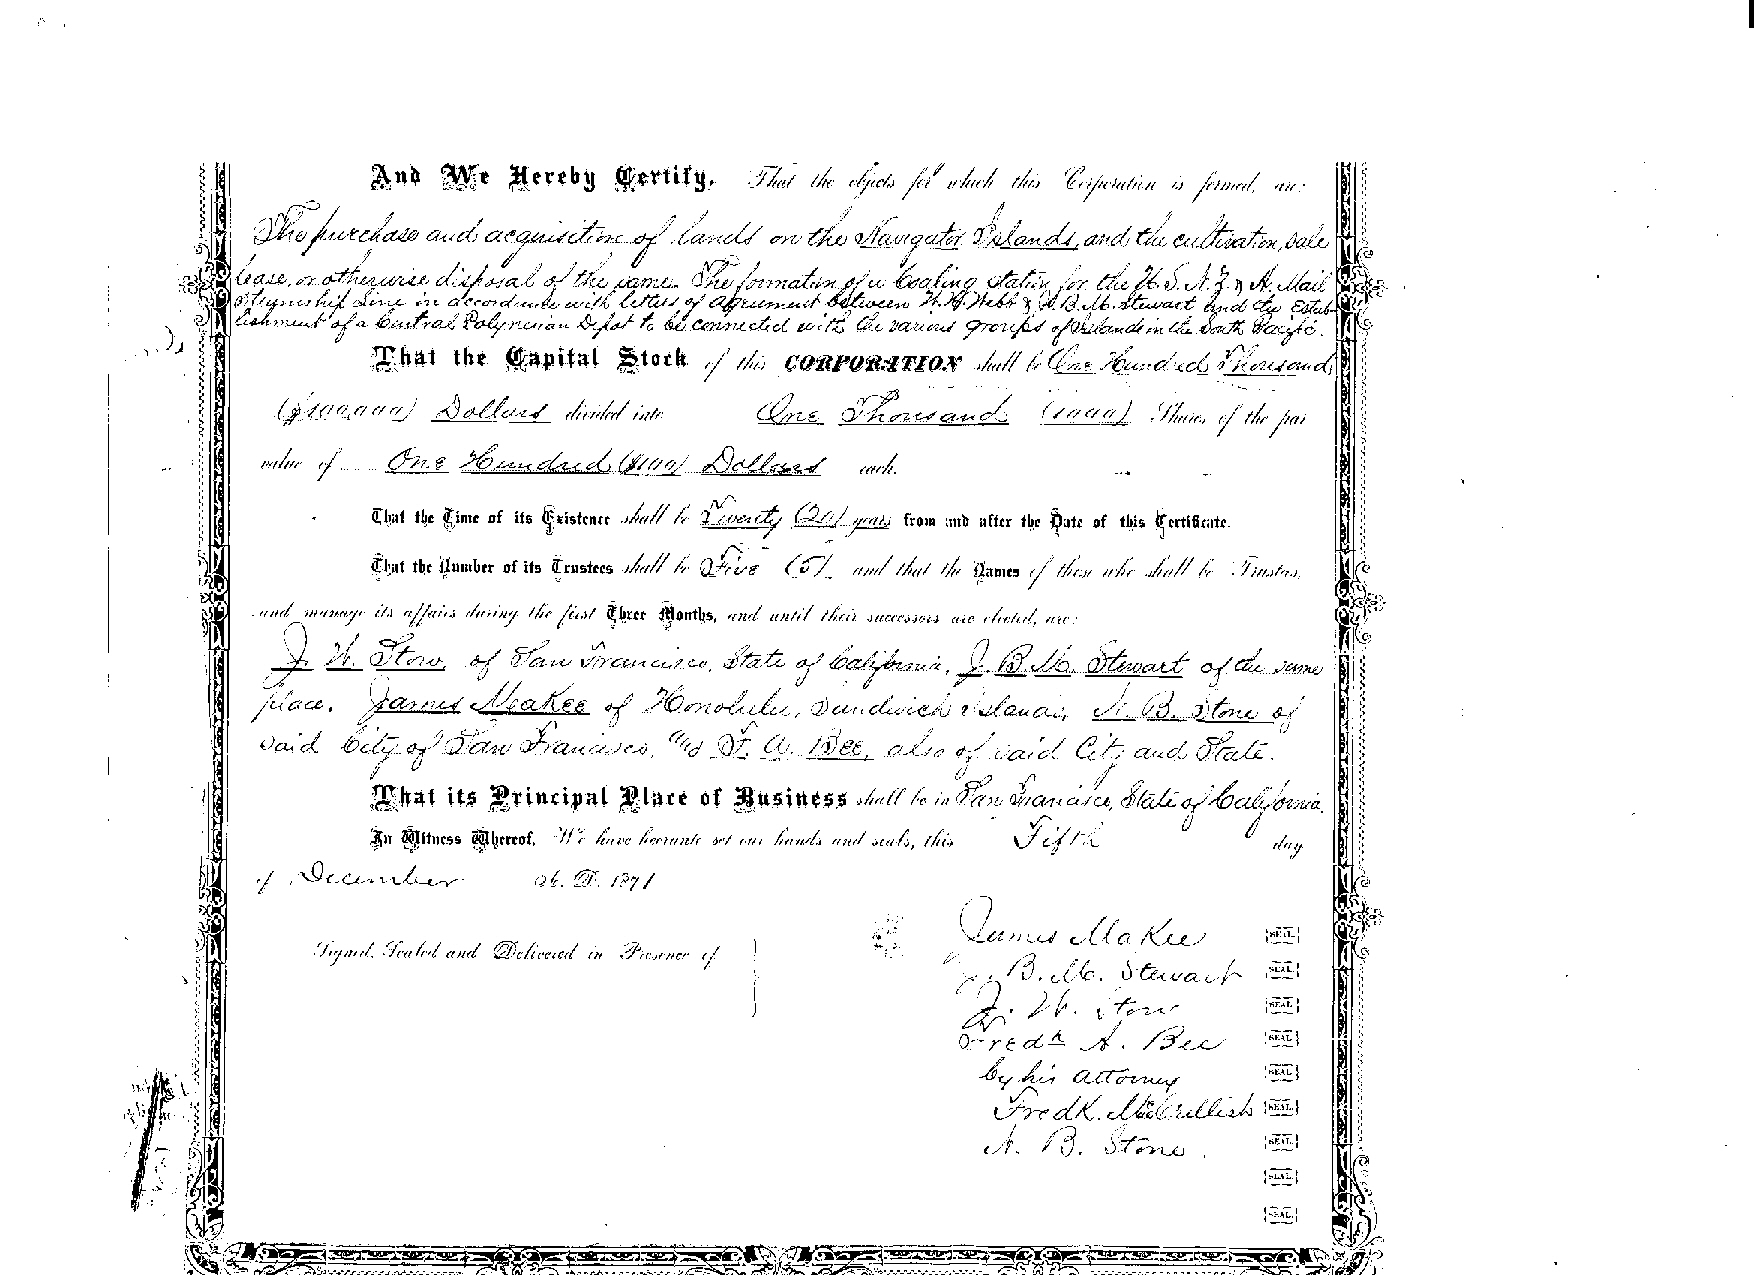 And We Hereby Certify, That the objects for which this Corporation is formed, are:
The purchase and acquisition of lands on the Navigator Islands, and the cultivation, sale
lease, or otherwise disposal of the same. The formation of a Coaling Station for the U.S. N.Z. & A. Mail
Steamship Line in accordance with letters of agreement between W.H. Webb & J.B.M. Stewart and the Estab-
lishment of a Central Polynesian Depot to be connected with the various groups of Islands in the South Pacific.
That the Capital Stock of this CORPORATION shall be One Hundred Thousand
($100,000) Dollars divided into One Thousand (1000) Shares of the par
value of One Hundred ($100) Dollars each.
That the Time of its Existence shall be Twenty (20) years from and after the Date of this Certificate.
That the Number of its Trustees shall be Five (5) and that the Names of those who shall be Trustees,
and manage its affairs during the first Three Months, and until their successors are elected, are:
J. W. Stow, of San Francisco, State of California, J. B. M. Stewart of the same
place. James Makee of Honolulu, Sandwich Islands, N. B. Stone of
said City of San Francisco, and F. A. Bee, also of said City and State.
That its Principal Place of Business shall be in San Francisco, State of California.
In Witness Whereof, We have hereunto set our hands and seals, this Fifth day
of December A. D. 1871
Signed, Sealed and Delivered in Presence of
James Makee SEAL
J. B. M. Stewart SEAL
J. W. Stow SEAL
Fredk A. Bee SEAL
by his Attorney SEAL
Fredk. MacCrellish SEAL
N. B. Stone. SEAL
SEAL
SEAL